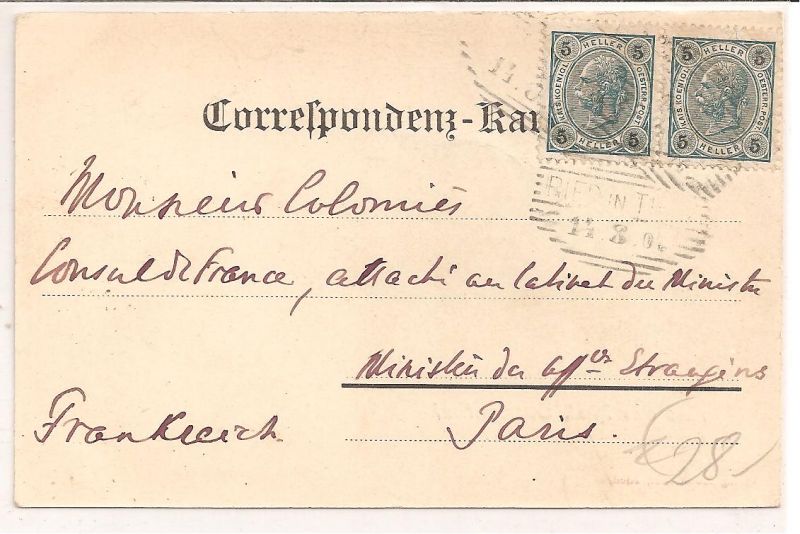 5 HELLER 5
KAIS. KOENIGL. OESTERR. POST.
5 HELLER 5
5 HELLER 5
KAIS. KOENIGL. OESTERR. POST.
5 HELLER 5
Correſpondenz-Kar
RIED IN T
14.8.0
Monsieur Colomiés
Consul de France, attaché au Cabinet du Ministre
Ministère des Aff res Etrangères
Frankreich
Paris.
28